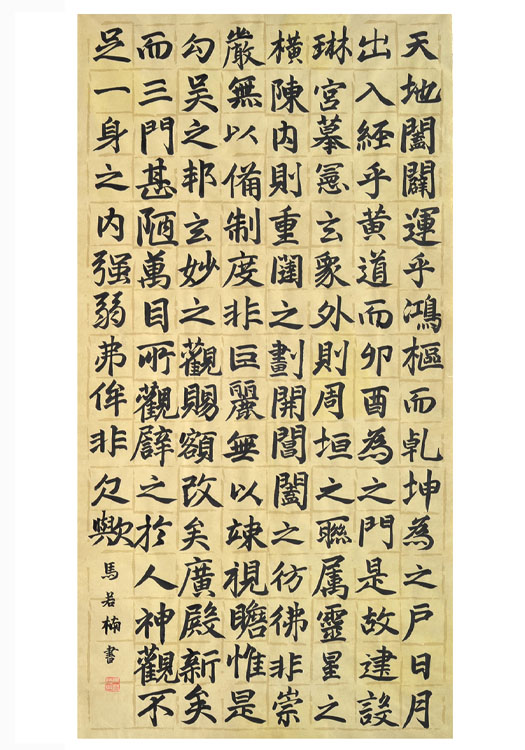 天地闔闢運乎鴻樞而乾坤為之戶日月
出入經乎黃道而卯酉為之門是故建設
琳宮摹憲玄象外則周垣之聯属靈星之
橫陳内則重闥之劃開閶闔之彷彿非崇
嚴無以備制度非巨麗無以竦視瞻惟是
勾吴之邦玄妙之觀賜額改矣廣殿新矣
而三門甚陋萬目所觀譬之於人神觀不
足一身之内强弱弗侔非欠歟
馬若楠書